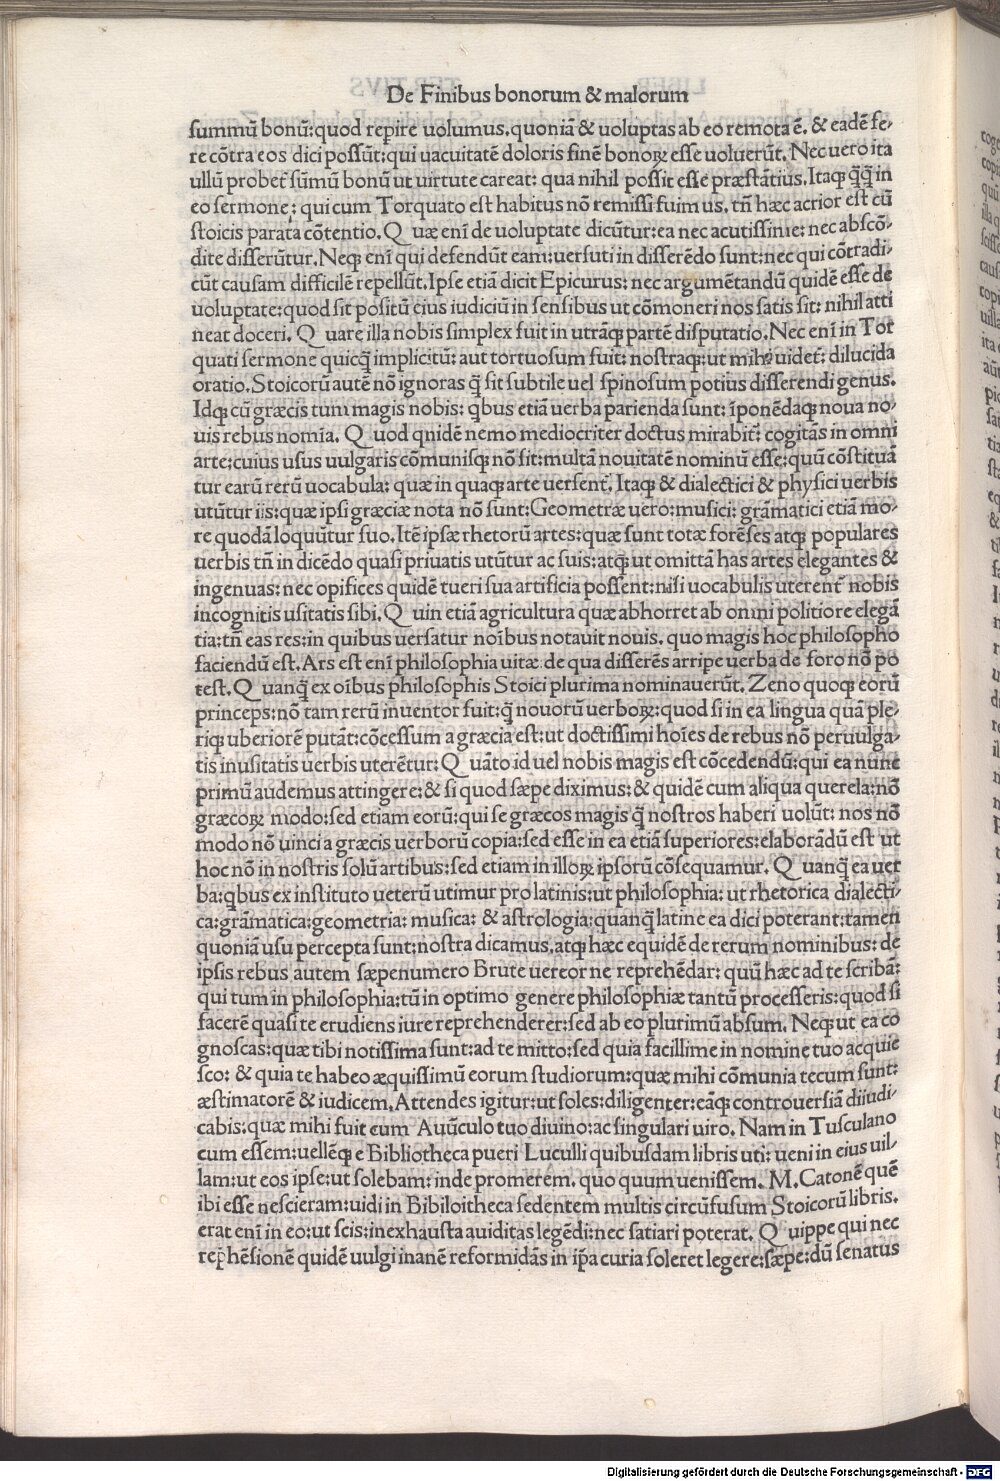 De Finibus bonorum & malorum
summũ bonũ:quod repire uolumus.quoniã & uoluptas ab eo remota ẽ. & eadẽ fe-
re cõtra eos dici possũt:qui uacuitatẽ doloris finẽ bonoꝝ esse uoluerũt. Nec uero ita
ullũ probet̃ sũmũ bonũ ut uirtute careat: qua nihil possit esse præstãtius.Itaqꝫ q̃q̃ in
eo sermone: qui cum Torquato est habitus nõ remissi fuimus. tñ hæc acrior est cũ
stoicis parata cõtentio.Q uæ enĩ de uoluptate dicũtur:ea nec acutissime: nec abscõ-
dite disserũtur.Neqꝫ enĩ qui defendũt eam:uersuti in disserẽdo sunt:nec qui cõtradi-
cũt causam difficilẽ repellũt.Ipse etiã dicit Epicurus: nec argumẽtandũ quidẽ esse de
uoluptate:quod sit positũ eius iudiciũ in sensibus ut cõmoneri nos satis sit: nihil atti
neat doceri. Q uare illa nobis simplex fuit in utrãqꝫ partẽ disputatio.Nec enĩ in Tor
quati sermone quicq̃ implicitũ: aut tortuosum fuit: nostraqꝫ:ut mihi uidet̃: dilucida
oratio.Stoicorũ autẽ nõ ignoras q̃ sit subtile uel spinosum potius disserendi genus.
Idqꝫ cũ græcis tum magis nobis: qbus etiã uerba parienda sunt: ĩponẽdaqꝫ noua no-
uis rebus nomĩa. Q uod qnidẽ nemo mediocriter doctus mirabit̃: cogitãs in omni
arte:cuius usus uulgaris cõmunisqꝫ nõ sit:multã nouitatẽ nominũ esse:quũ cõstituã
tur earũ rerũ uocabula: quæ in quaqꝫ arte uersent̃. Itaqꝫ & dialectici & physici uerbis
utũtur iis:quæ ipsi græciæ nota nõ sunt:Geometræ uero:musici: grãmatici etiã mo-
re quodã loquũtur suo. Itẽ ipsæ rhetorũ artes:quæ sunt totæ forẽses atqꝫ populares
uerbis tñ in dicẽdo quasi priuatis utũtur ac suis:atqꝫ ut omittã has artes elegantes &
ingenuas: nec opifices quidẽ tueri sua artificia possent:nisi uocabulis uterent̃ nobis
incognitis usitatis sibi. Q uin etiã agricultura quæ abhorret ab omni politiore elegã
tia:tñ eas res:in quibus uersatur noĩbus notauit nouis. quo magis hoc philosopho
faciendũ est.Ars est enĩ philosophia uitæ. de qua differẽs arripe uerba de foro nõ po
test.Q uanq̃ ex oĩbus philosophis Stoici plurima nominauerũt. Zeno quoqꝫ eorũ
princeps:nõ tam rerũ inuentor fuit:q̃ nouorũ uerboꝝ:quod si in ea lingua quã ple-
riqꝫ uberiorẽ putãt:cõcessum a græcia est:ut doctissimi hoĩes de rebus nõ peruulga-
tis inusitatis uerbis uterẽtur: Q uãto id uel nobis magis est cõcedendũ:qui ea nunc
primũ audemus attingere:& si quod sæpe diximus:& quidẽ cum aliqua querela:nõ
græcoꝝ modo:sed etiam eorũ:qui se græcos magis q̃ nostros haberi uolũt: nos nõ
modo nõ uinci a græcis uerborũ copia:sed esse in ea etiã superiores:elaborãdũ est ut
hoc nõ in nostris solũ artibus:sed etiam in illoꝝ ipsorũ cõsequamur. Q uanq̃ ea uer
ba:qbus ex instituto ueterũ utimur pro latinis:ut philosophia: ut rhetorica dialecti-
ca:grãmatica:geometria: musica: & astrologia:quanq̃ latine ea dici poterant:tamen
quoniã usu percepta sunt:nostra dicamus.atqꝫ hæc equidẽ de rerum nominibus: de
ipsis rebus autem sæpenumero Brute uereor ne reprehẽdar: quũ hæc ad te scribã:
qui tum in philosophia:tũ in optimo genere philosophiæ tantũ processeris:quod si
facerẽ quasi te erudiens iure reprehenderer:sed ab eo plurimũ absum. Neqꝫ ut ea co
gnoscas:quæ tibi notissima sunt:ad te mitto:sed quia facillime in nomine tuo acquie
sco: & quia te habeo æquissimũ eorum studiorum:quæ mihi cõmunia tecum sunt:
æstimatorẽ & iudicem.Attendes igitur:ut soles:diligenter:eãqꝫ controuersiã diiudi-
cabis:quæ mihi fuit cum Auũculo tuo diuino:ac singulari uiro. Nam in Tusculano
cum essem:uellẽqꝫ e Bibliotheca pueri Luculli quibusdam libris uti: ueni in eius uil-
lam:ut eos ipse:ut solebam: inde promerem. quo quum uenissem. M. Catonẽ quẽ
ibi esse nescieram:uidi in Bibiloitheca sedentem multis circũfusum Stoicorũ libris.
erat enĩ in eo:ut scis:inexhausta auiditas legẽdi:nec satiari poterat. Q uippe qui nec
rep̃hẽsionẽ quidẽ uulgi inanẽ reformidãs in ip̃a curia soleret legere:sæpe:dũ senatus
Digitalisierung gefördert durch die Deutsche Forschungsgemeinschaft - DFG